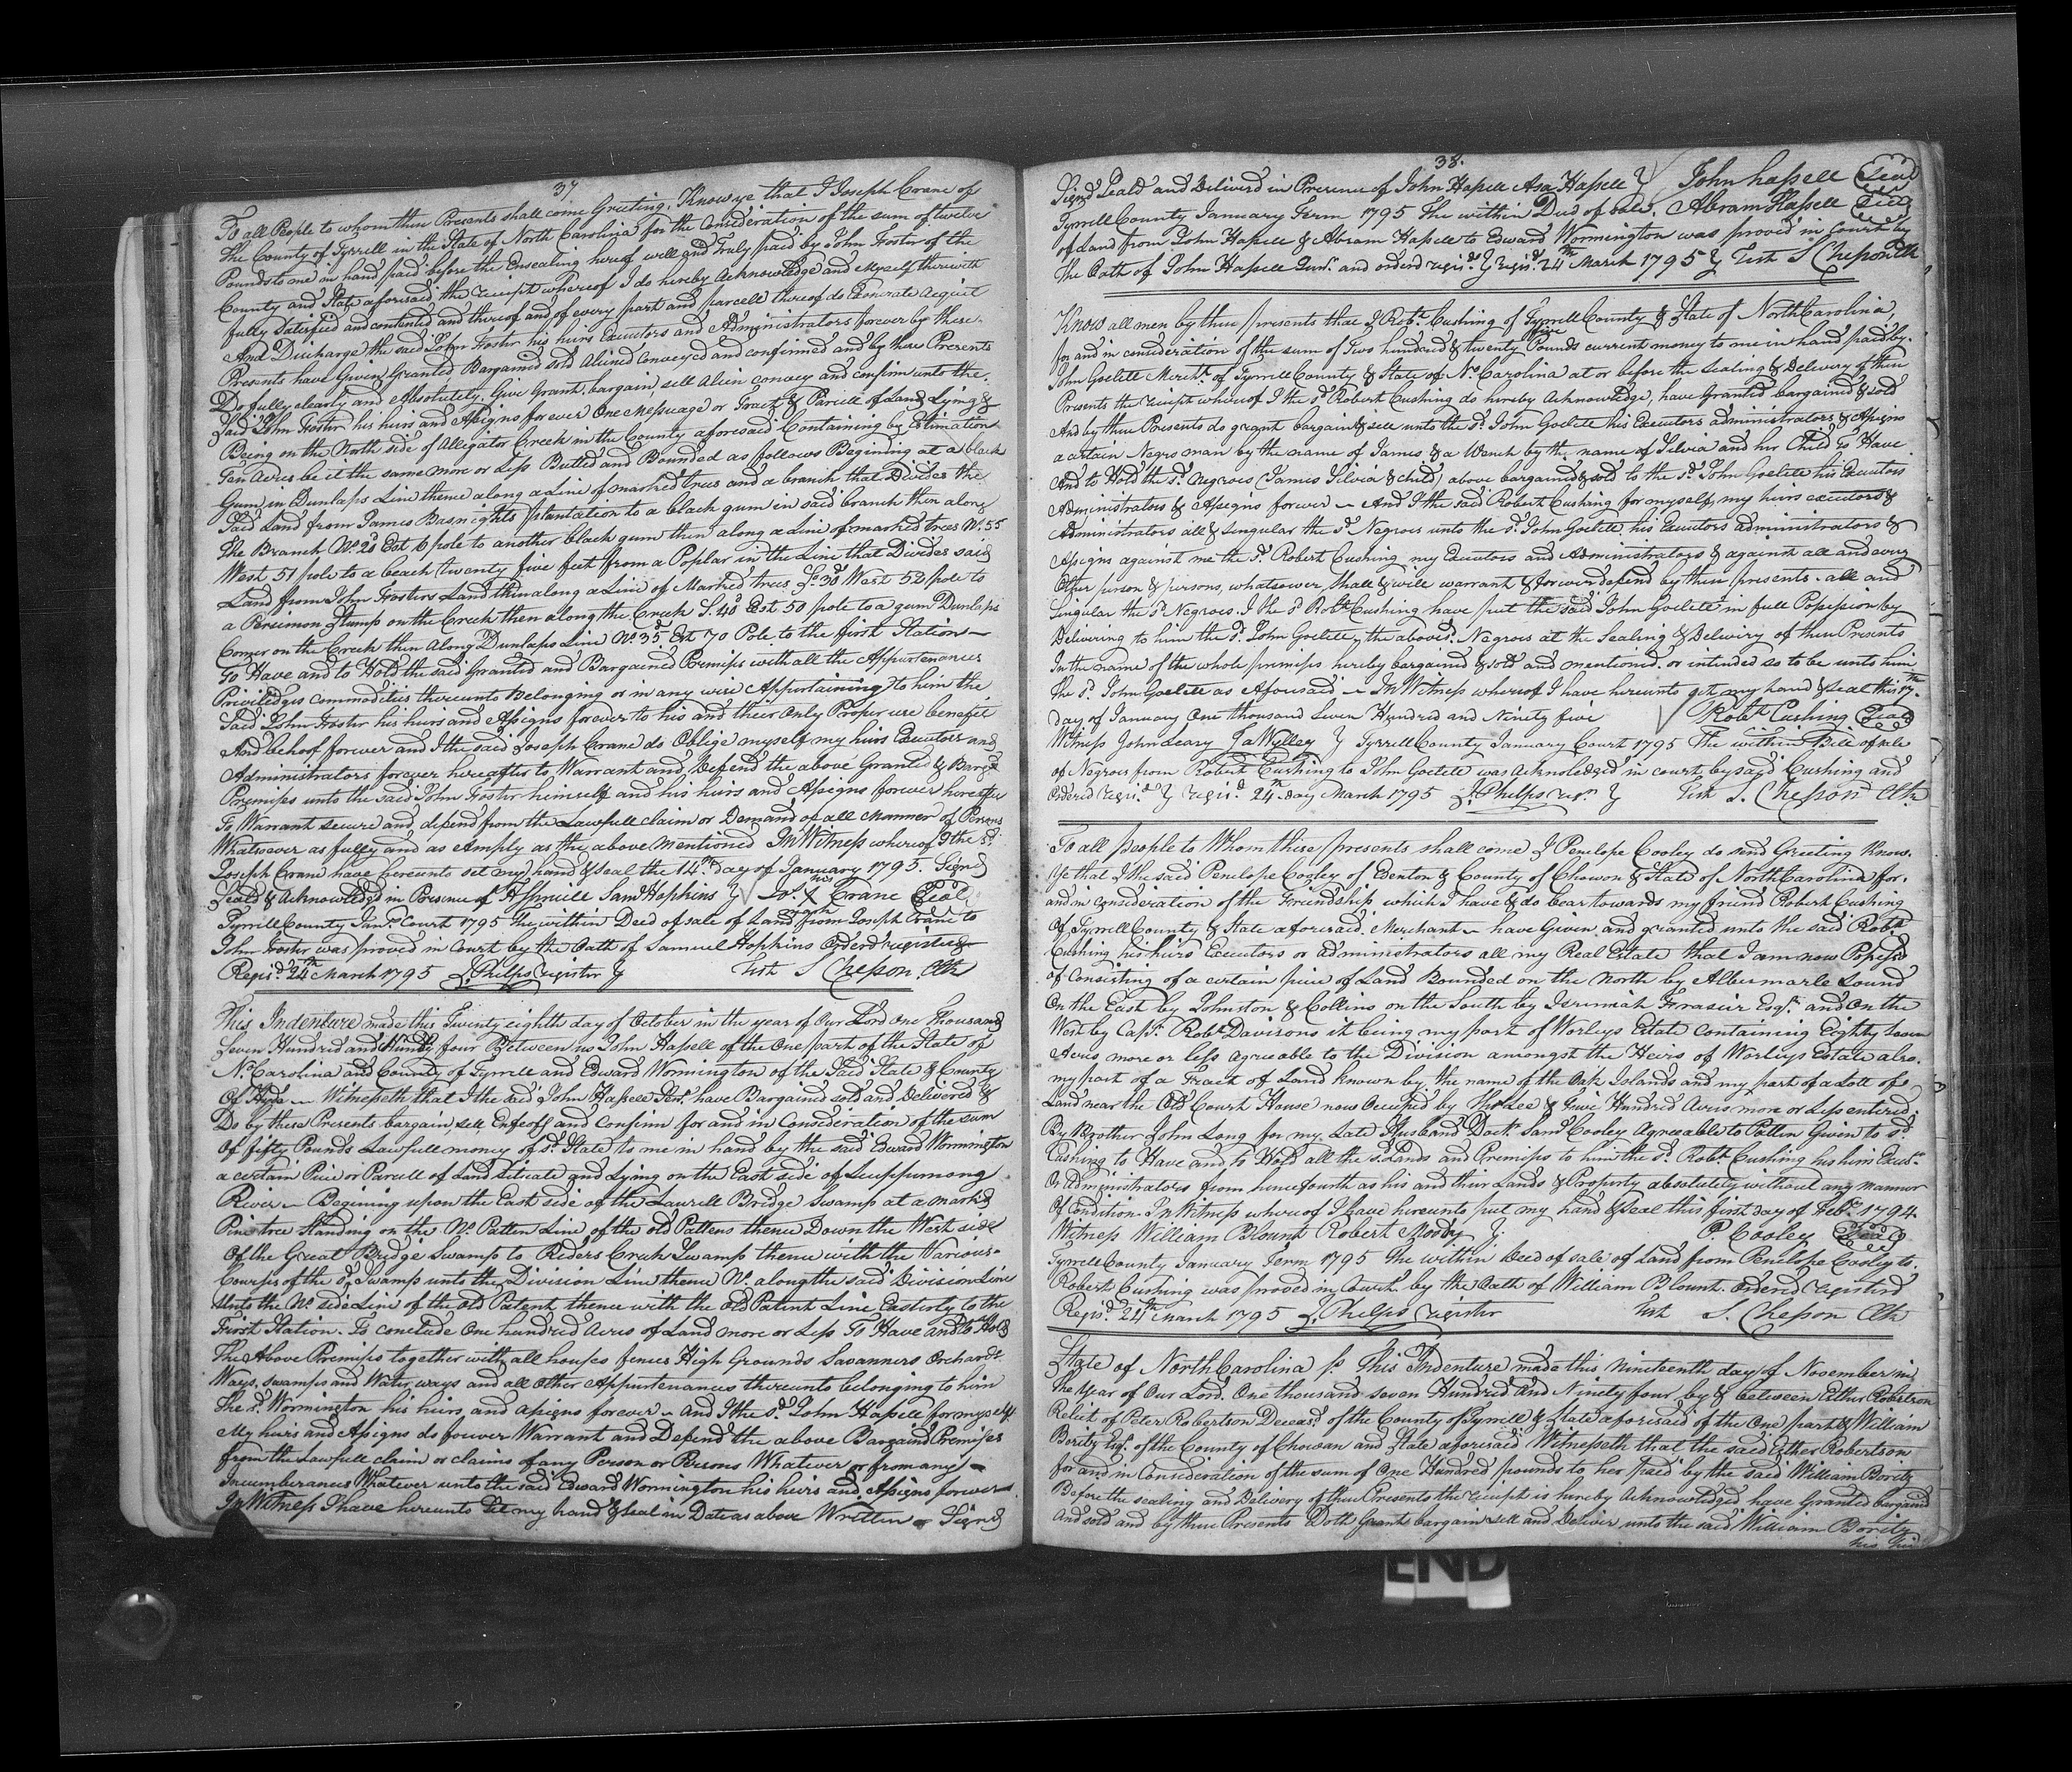 37
To all People to whom these Presents shall come Greeting. Know ye that I Joseph Crane of
the County of Tyrrell in the State of North Carolina for the Consideration of the sum of twelve
Pounds to me in hand paid before the Ensealing hereof well and Truly paid by John Foster of the
County and State aforesaid the receipt whereof I do hereby Acknowledge and Myself therewith
fully Satisfied and contented and thereof and of every part and parcell thereof do Exonerate Acquit
And Discharge the said John Foster his heirs Executors and Administrators forever by these
Presents have Given Granted Bargained Sold Aliened Conveyed and confirmed and by these Presents
Do fully clearly and Absolutely. Give Grant, bargain, sell Alien convey and confirm unto the
Said John Foster his heirs and Assigns forever One Messuage or Tract & Parcell of Land Lying &
Being on the North side of Alligator Creek in the County aforesaid Containing by Estimation
Ten Acres be it the same more or Less Butted and Bounded as follows Begining at a black
Gum in Dunlaps Line thence along a Line of marked trees and a branch that Divides the
Said Land from James Basnights plantation to a black gum in said branch then along
The Branch No. 20 Est 6 pole to another black gum then along a Line of marked trees No. 55
West 51 pole to a beach twenty five feet from a Poplar in the Line that Divides said
Land from John Fosters Land then along a Line of Marked trees So. 30 West 52 pole to
a Persimon Stump on the Creek then along the Creek S. 40 Est 50 pole to a gum Dunlaps
Corner on the Creek then Along Dunlaps Line No. 35 Est 70 Pole to the first Station
To Have and to Hold the said Granted and Bargained Premises with all the Appurtenances
Priviledges commodities thereunto Belonging or in any wise Appertaining to him the
Said John Foster his heirs and Assigns forever to his and their Only Proper use benefit
And behoof forever and I the said Joseph Crane do Oblige myself my heirs Executors and
Administrators forever hereafter to Warrant and Defend the above Granted & Bargd
Premises unto the said John Foster himself and his heirs and Assigns forever hereafter
To Warrant secure and defend from the Lawfull claim or Demand of all Manner of Persons
Whatsoever as fully and as Amply as the above mentioned In Witness whereof I the sd.
Joseph Crane have hereunto set my hand & seal the 14th day of January 1795. Signd
Seald & Acknowledgd in Presence of H Spruill Saml Hopkins } Jos. his X mark Crane Seal
Tyrrell County Jany. Court 1795 The within Deed of sale of Land from Joseph Crane to
John Foster was proved in Court by the Oath of Samuel Hopkins Orderd registerd
Regisd. 24th March 1795 J. Phelps register } Test S Chesson Clk
This Indenture made this Twenty eighth day of October in the year of Our Lord One Thousand
Seven Hundred and Ninety four Between us John Hassell of the One part of the State of
No. Carolina and County of Tyrrell and Edward Wormington of the Said State & County
Of Hyde Witnesseth that I the said John Hassell Senr. have Bargained sold and Delivered &
Do by these Presents bargain sell Enfeoff and Confirm for and in Consideration of the sum
Of fifty Pounds Lawfull money of sd. State to me in hand by the said Edward Wormington
a certain Piece or Parcell of Land Situate and Lying on the East side of Scuppernong
River Begining upon the East side of the Lawrell Bridge Swamp at a marked
Pine tree Standing on the No. Patten Line of the old Pattens thence Down the West side
Of the Great Bridge Swamp to Riders Creek Swamp thence with the Various
Courses of the sd. Swamp unto the Division Line thence No. along the said Division Line
Unto the No. side Line of the old Patent thence with the old Patent Line Easterly to the
First Station. To conclude One hundred Acres of Land more or Less To Have and to Hold
The Above Premises together with all houses fences High Grounds Savanners Orchards
Ways, swamps and Water ways and all Other Appurtenances thereunto belonging to him
The sd. Wormington his heirs and assigns forever and I the sd. John Hassell for myself
My heirs and Assigns do forever Warrant and Defend the above Bargaind Premises
from the Lawfull claim or claims of any Person or Persons Whatever or from any
Incumberances Whatever unto the said Edward Wormington his heirs and Assigns forever
In Witness I have hereunto Set my hand & seal in Date as above Written Signd
38.
Signd Seald and Deliverd in Presence of John Hassell Asa Hassell } John hassell Seal
Tyrrell County January Term 1795 The within Deed of sale. Abram Hassell Seal
of Land from John Hassell & Abram Hassell to Edward Wormington was proved in Court by
The Oath of John Hassell Junr. and orderd regisd. } regisd. 24th March 1795 } Test S Chesson Clk
Know all men by these presents that I Robt. Cushing of Tyrrell County & State of North Carolina,
for and in consideration of the sum of Two hundred & twenty five Pounds current money to me in hand paid by
John Goelett Mercht. of Tyrrell County & State of No. Carolina at or before the Sealing & Delivery of these
Presents the receipt whereof I the sd Robert Cushing do hereby Acknowledge, have Granted bargained & sold
And by these Presents do grant bargain & sell unto the sd. John Goelett his Executors administrators & Assigns
a certain Negro man by the name of James & a Wench by the name of Silvia and her Child To Have
And to Hold the sd. Negroes (James Silvia & child) above bargained & sold to the sd. John Goelett his Executors
Administrators & Assigns forever And I the said Robert Cushing for myself, my heirs executors &
Administrators all & singular the sd Negroes unto the sd. John Goelett his Executors administrators &
Assigns against me the sd. Robert Cushing my Executors and Administrators & against all and every
Other person & persons, whatsoever, Shall & will warrant & forever defend by these presents all and
Singular the sd. Negroes. I the sd Robt. Cushing have put the said John Goelett in full Possession by
Delivering to him the sd. John Goelett the abovesd. Negroes at the Sealing & Delivery of these Presents
In the name of the whole premises hereby bargained & sold and mentioned or intended so to be unto him
the sd. John Goelett as Aforesaid In Witness whereof I have hereunto set my hand & seal this 17th
day of January One thousand Seven Hundred and Ninety five Robt Cushing Seal
Witness John Leary Ja Wylley } Tyrrell County January Court 1795 The within Bill of sale
of Negroes from Robert Cushing to John Goelett was Acknoledgd in court by sayd Cushing and
Ordered regisd } regisd. 24th day March 1795 J. Phelps regr. } Test S. Chesson Clk
To all people to Whom these presents shall come I Penelope Cooley do send Greeting Know.
Ye that I the said Penelope Cooley of Edenton & County of Chowon & State of North Carolina for.
and in consideration of the Friendship which I have & do bear towards my friend Robert Cushing
Of Tyrrell County & State aforesaid. Merchant have Given and granted unto the said Robt.
Cushing his heirs Executors or administrators all my Real Estate that I am now Possessd
Of Consisting of a certain piece of Land Bounded on the North by Albermarle Sound
On the East by Johnston & Collins on the South by Jerimiah Frasier Esqr. and On the
West by Capt. Robt. Davisons it being my part of Worleys Estate containing Eighty seven
Acres more or less agreeable to the Division amongst the Heirs of Worleys Estate also.
my part of a Tract of Land known by the name of the Oak Islands and my part of a Lott of
Land near the Old Court House now Occupied by Thos Lee & Five Hundred Acres more or Less entered.
By Brother John Long for my Late Husband Doctr. Saml Cooley Agreeable to Patten Given to sd.
Cushing to Have and to Hold all the sd. Lands and Premises to him the sd. Robt. Cushing his heirs Execrs.
Or Administrators from henceforth as his and their Lands & Property absolutely without any manner
Of Condition. In Witness whereof I have hereunto put my hand & seal this first day of Feby. 1794
Witness William Blount Robert Mobby } P. Cooley Seal
Tyrrell County January Term 1795 The within Deed of sale of Land from Penelope Cooley to.
Robert Cushing was proved in Court by the Oath of William Blount. Orderd registerd
Regisd. 24th March 1795 J. Phelps register Test S. Chesson Clk
State of North Carolina ss This Indenture made this nineteenth day of November in
the Year of Our Lord. One thousand seven Hundred and Ninety four by & between Esther Robertson
Relict of Peter Robertson Deceasd. of the County of Tyrrill & State aforesaid of the One part & William
Boritz Esqr. of the County of Chowan and State aforesaid Witnesseth that the said Esther Robertson
for and in Consideration of the sum of One Hundred pounds to her paid by the said William Boritz
Before the sealing and Delivery of these Presents the receipt is hereby Acknowledged have Granted bargaind
And sold and by these Presents Doth Grant bargain sell and Deliver unto the said William Boritz
his heirs
END